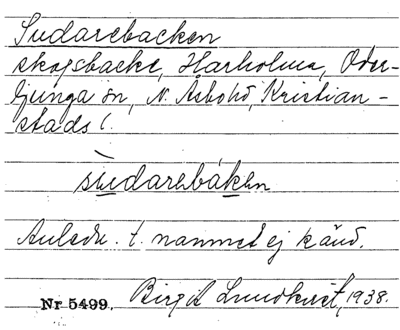 Sudarebacken
skogsbacke, Harholma, Oder-
ljunga sn, N. Åsbo hd, Kristian-
stads l.
sùdarebáken
Anledn. t. namnet ej känd.
Nr 5499. Birgit Lundkvist, 1938.